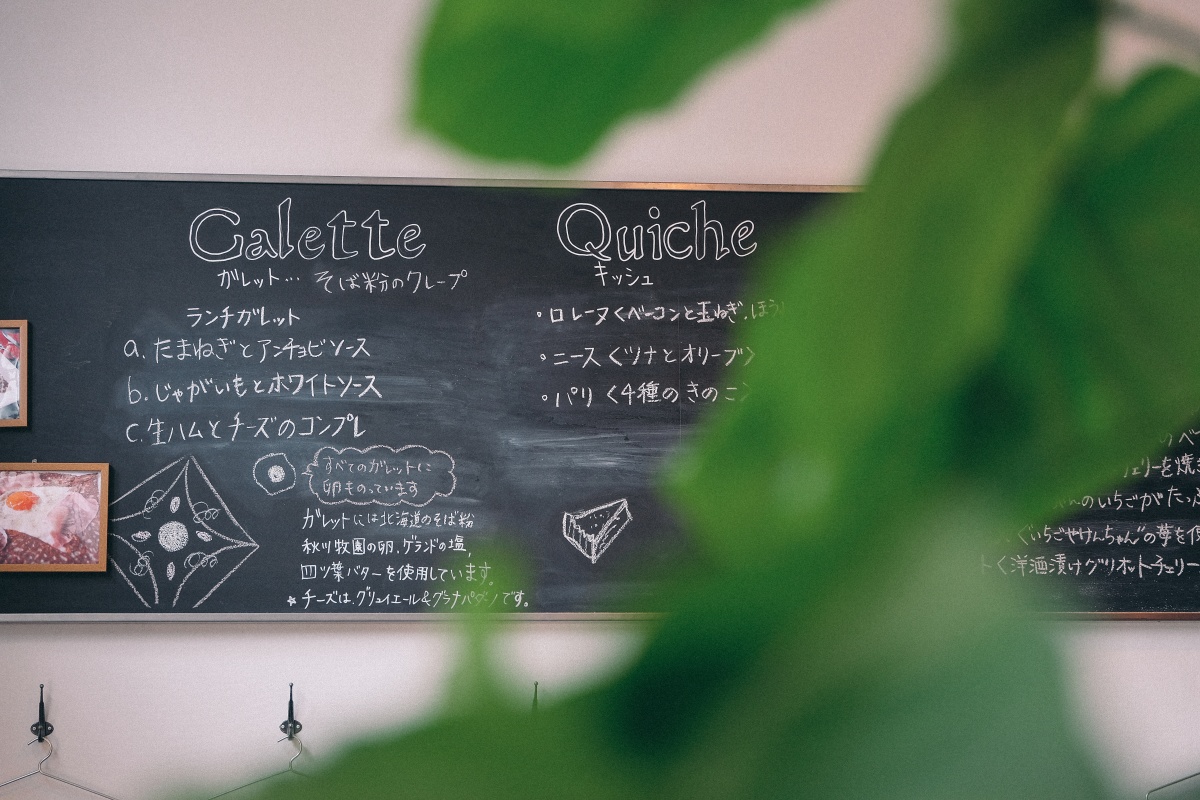 Galette
ガレット… そば粉のクレープ
ランチガレット
a. たまねぎとアンチョビソース
b. じゃがいもとホワイトソース
c. 生ハムとチーズのコンプレ
すべてのガレットに
卵ものっています
ガレットには北海道のそば粉
秋川牧園の卵、ゲランドの塩、
四ツ葉バターを使用しています。
★チーズは、グリュイエール&グラナパダノです。
Quiche
キッシュ
・ロレーヌ〈ベーコンと玉ねぎ、ほう
・ニース〈ツナとオリーブ〉
・パリ〈4種のきのこ
ェリーを焼き
のいちごがたっぷ
〈いちごやけんちゃん"の苺を使
く洋酒漬けグリオットチェリー